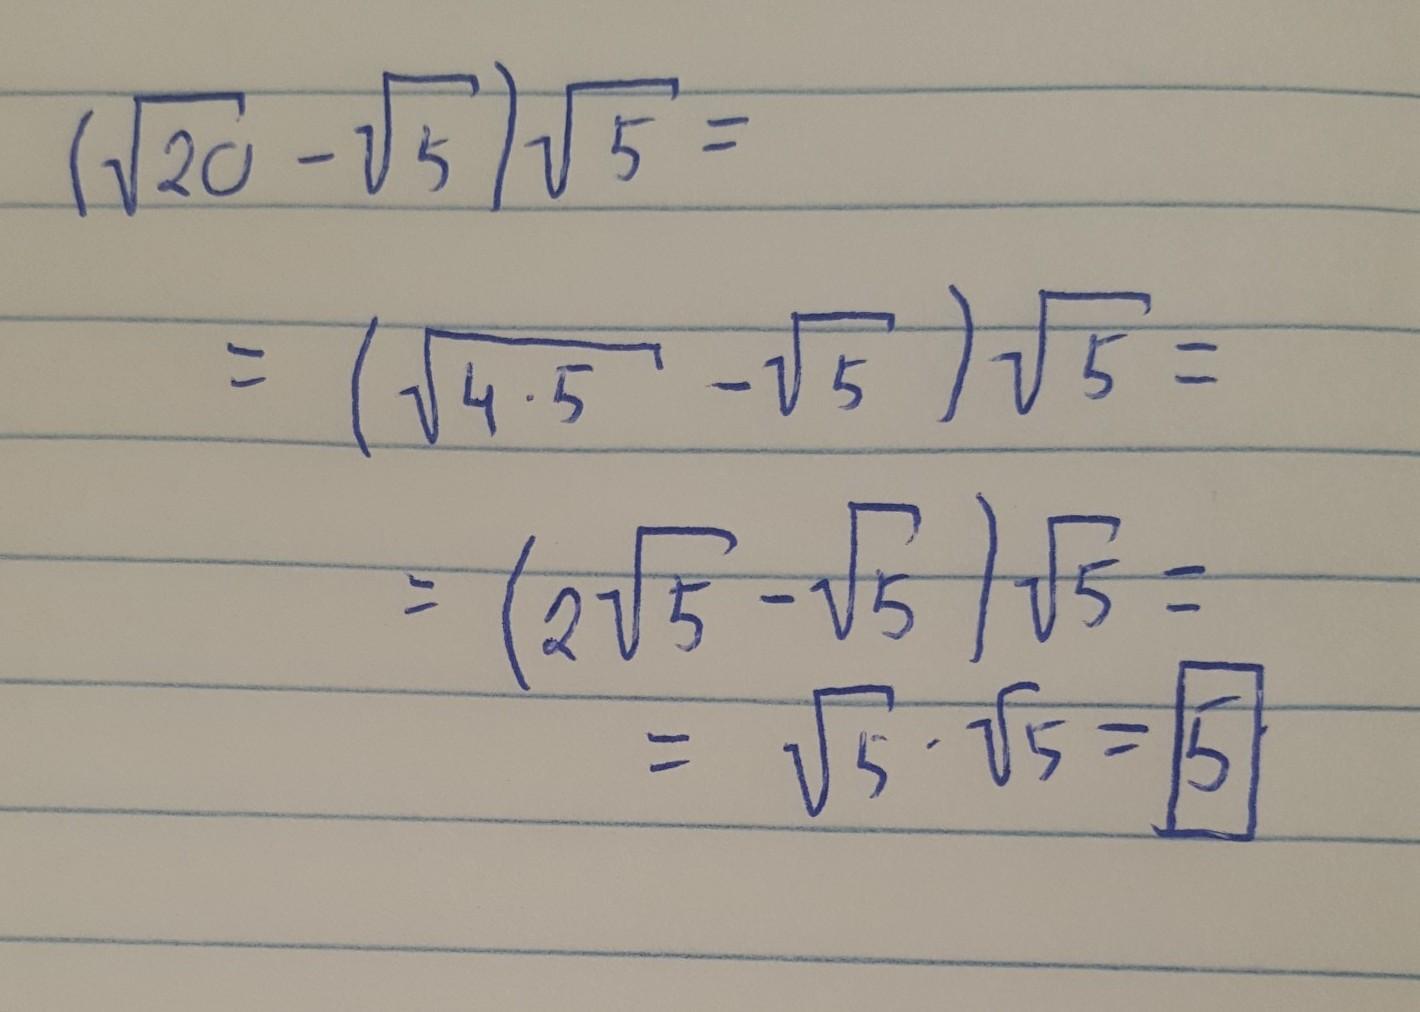 (√20 - √5)√5 =
= (√4·5 - √5)√5 =
= (2√5 - √5)√5 =
= √5 · √5 = 5